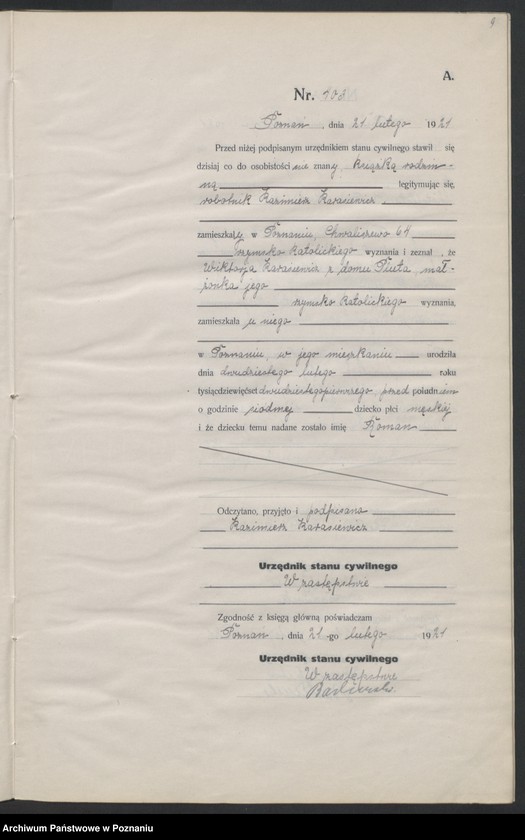 9
A.
Nr. 103
Poznań, dnia 21 lutego 1921
Przed niżej podpisanym urzędnikiem stanu cywilnego stawił się
dzisiaj co do osobistości nie znany, książką rodzin-
ną legitymując się,
robotnik Kazimierz Karasiewicz
zamieszkały w Poznaniu, Chwaliszewo 64
rzymsko katolickiego wyznania i zeznał, że
Wiktorja Karasiewicz z domu mał-
żonka jego
rzymsko katolickiego wyznania,
zamieszkała u niego
w Poznaniu, w jego mieszkaniu urodziła
dnia dwudziestego lutego roku
tysiącdziewięćset dwudziestegopierwszego, przed południem
o godzinie siódmej dziecko płci męskiej
i że dziecku temu nadane zostało imię Roman
Odczytano, przyjęto i podpisano
Kazimierz Karasiewicz
Urzędnik stanu cywilnego
W zastępstwie
Zgodność z księgą główną poświadczam
Poznań, dnia 21-go lutego 1921
Urzędnik stanu cywilnego
W zastępstwie
Archiwum Państwowe w Poznaniu